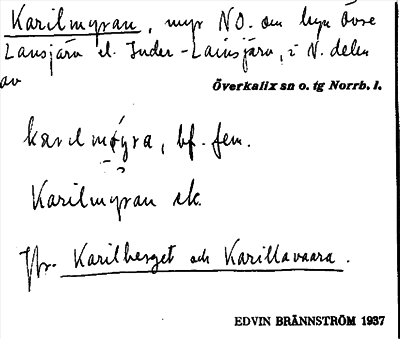 Karilmyran, myr NO. om byn Övre
Lansjärv el. Inder-Lansjärv, i N. delen
av
Överkalix sn o. tg Norrb. l.
bf. fem.
Karilmyran sk.
Jfr. Karilberget och Karillavaara.
EDVIN BRÄNNSTRÖM 1937